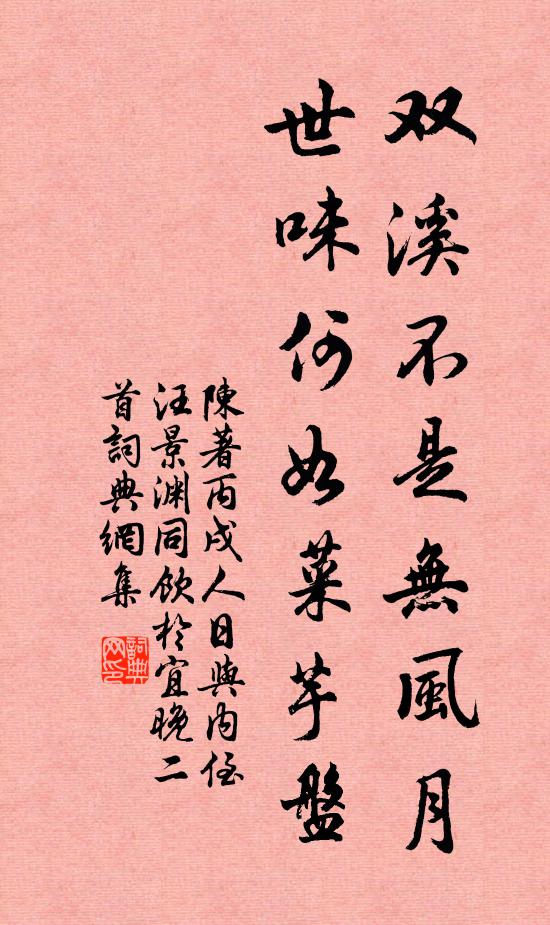 双溪不是無風月
世味何如菜芋盤
陳著丙戌人日與内侄
汪景渊同飲於宜晚二
首詞典網集
詞典
网印